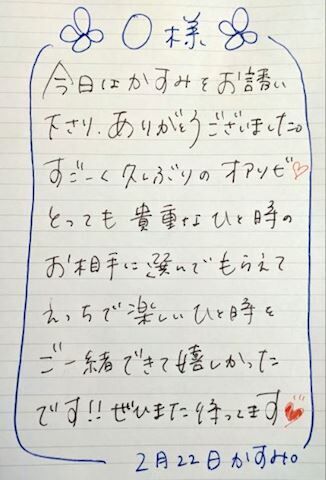 ○様
今日はかすみをお誘い
下さり、ありがとうございました。
すごーく久しぶりのオアソビ♡
とっても貴重なひと時の
お相手に選んでもらえて
えっちで楽しいひと時を
ご一緒できて嬉しかった
です!!ぜひまた待ってます♥
2月22日かすみ。